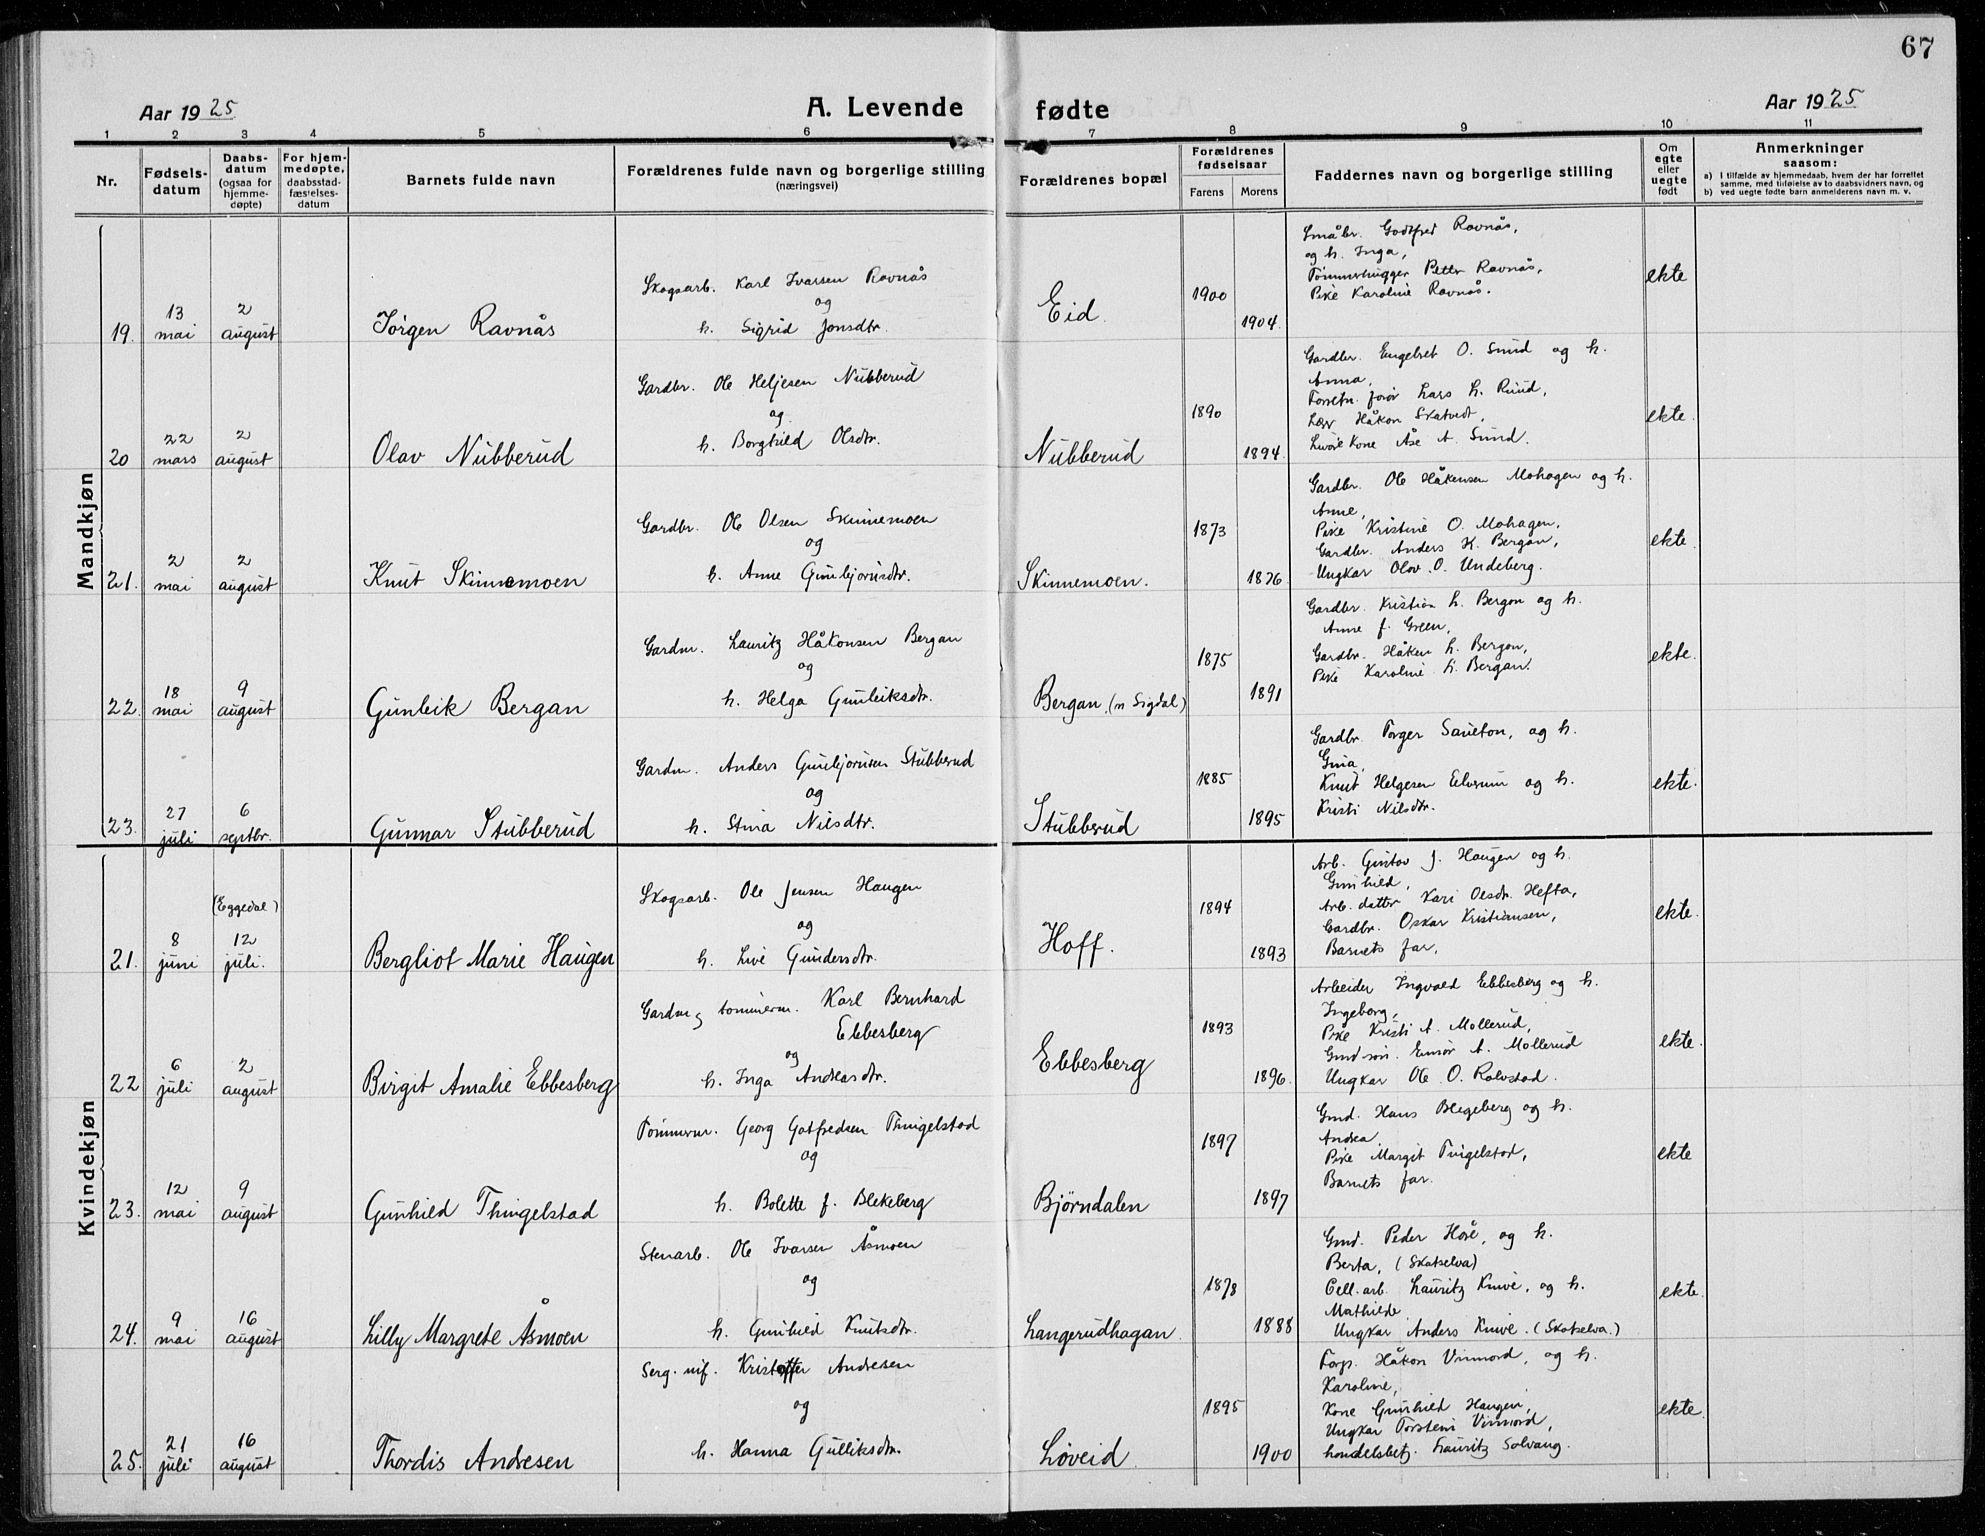 67
Aar 1925
A. Levende fødte
Aar 1925
1 2 3 4 5 6 7 8 9 10 11
Nr.
Fødsels-
datum
Daabs-
datum
(ogsaa for
hjemme-
døpte)
For hjem-
medøpte,
daabsstad-
fæstelses-
datum
Barnets fulde navn
Forældrenes fulde navn og borgerlige stilling
(næringsvei)
Forældrenes bopæl
Forældrenes
fødselsaar
Farens Morens
Faddernes navn og borgerlige stilling
Om
egte
eller
uegte
født
Anmerkninger
saasom:
a) I tilfælde av hjemmedaab, hvem der har forrettet
samme, med tilføielse av to daabsvidners navn, og
b) ved uegte fødte barn anmelderens navn m. v.
Mandkjøn
19. 13 mai
2 august
Jørgen Ravnås
Skogsarb. Karl Ivarsen Ravnås
og
h. Sigrid Jonsdtr.
Eid.
1900
1904.
Småbr. Godtfred Ravnås,
og h. Inga,
Tømmerhugger Petter Ravnås,
Pike Karoline Ravnås.
ekte
20 22 mars
2 august
Olav Nubberud
Gardbr. Ole Heljesen Nubberud
og
h. Borghild Olsdtr.
Nubberud
1890
1894.
Gardbr. Engebret O. Sund og h.
Anna,
Lars h. Ruud,
Håkon Skatvedt,
Kone Åse A. Sund.
ekte.
21. 2 mai
2 august
Knut Skinnemoen
Gardbr. Ole Olsen Skinnemoen
og
h. Anne Gunbjørnsdtr.
Skinnemoen.
1873
1876
Gardbr. Ole Håkensen Mohagen og h.
Anne,
Pike Kristine O. Mohagen,
Gardbr. Anders K. Bergan,
Ungkar Olav O. Undeberg.
ekte.
22. 18 mai
9 august
Gunleik Bergan
Gardm. Lauritz Håkonsen Bergan
og
h. Helga Gunleiksdtr.
Bergan (n Sigdal)
1875
1891
Gardbr. Kristian h. Bergan og h.
Anne f. Green,
Gardbr. Håken h. Bergan,
Pike Karoline h. Bergan.
ekte.
23. 27 juli
6 septbr.
Gunnar Stubberud
Gardm. Anders Gunbjørnsen Stubberud
og
h. Stina Nilsdtr.
Stubberud
1885
1895
Gardbr. Torger og h.
Gina,
Knut Helgesen og h.
Kristi Nilsdtr.
ekte.
Kvindekjøn
21. 8 juni
(Eggedal)
12 juli.
Bergliot Marie Haugen
Skogsarb. Ole Jensen Haugen
og
h. Live Gundersdtr.
Hoff.
1894
1893
Arb. Gustav J. Haugen og h.
Gunhild,
Arb. datter Kari Olsdtr. Hefta,
Gardbr. Oskar Kristiansen,
Barnets far,
ekte.
22 6 juli
2 august
Birgit Amalie Ebbesberg
Gardm og tømmerm. Karl Bernhard
Ebbesberg
og
h. Inga Andreasdtr.
Ebbesberg
1893
1896.
Arbeider Ingvald Ebbesberg og h.
Ingeborg,
Pike Kristi A. Mollerud,
Gmd søn. Einar A. Mollerud
Ungkar Ole O. Rolvstad.
ekte.
23. 12 mai
9 august
Gunhild Thingelstad
Tømmerm. Georg Gotfredsen Thingelstad
og
h. Bolette f. Blekeberg
Bjørndalen
1897
1897
Gmd. Hans Blegeberg og h.
Andrea
Pike Margit Tingelstad,
Barnets far.
ekte
24. 9 mai
16 august
Lilly Margrete Åsmoen
Stenarb. Ole Ivarsen Åsmoen
og
h. Gunhild Knutsdtr.
Langerudhagan
1878
1888
Gmd. Peder Hore, og h.
Berta, (Skotselva)
Cell. arb. Lauritz Knive, og h.
Mathilde
Ungkar Anders Knive. (Skotselva.)
ekte.
25. 21 juli
16 august
Thordis Andresen
Serg. Kristoffer Andresen
og
h. Hanna Gulliksdtr.
Løveid
1895
1900
Forp. Håkon Vinmord, og h.
Karoline,
Kone Gunhild Haugen,
Ungkar Torstein Vinmord,
handelsbet. Lauritz Solvang.
ekte.